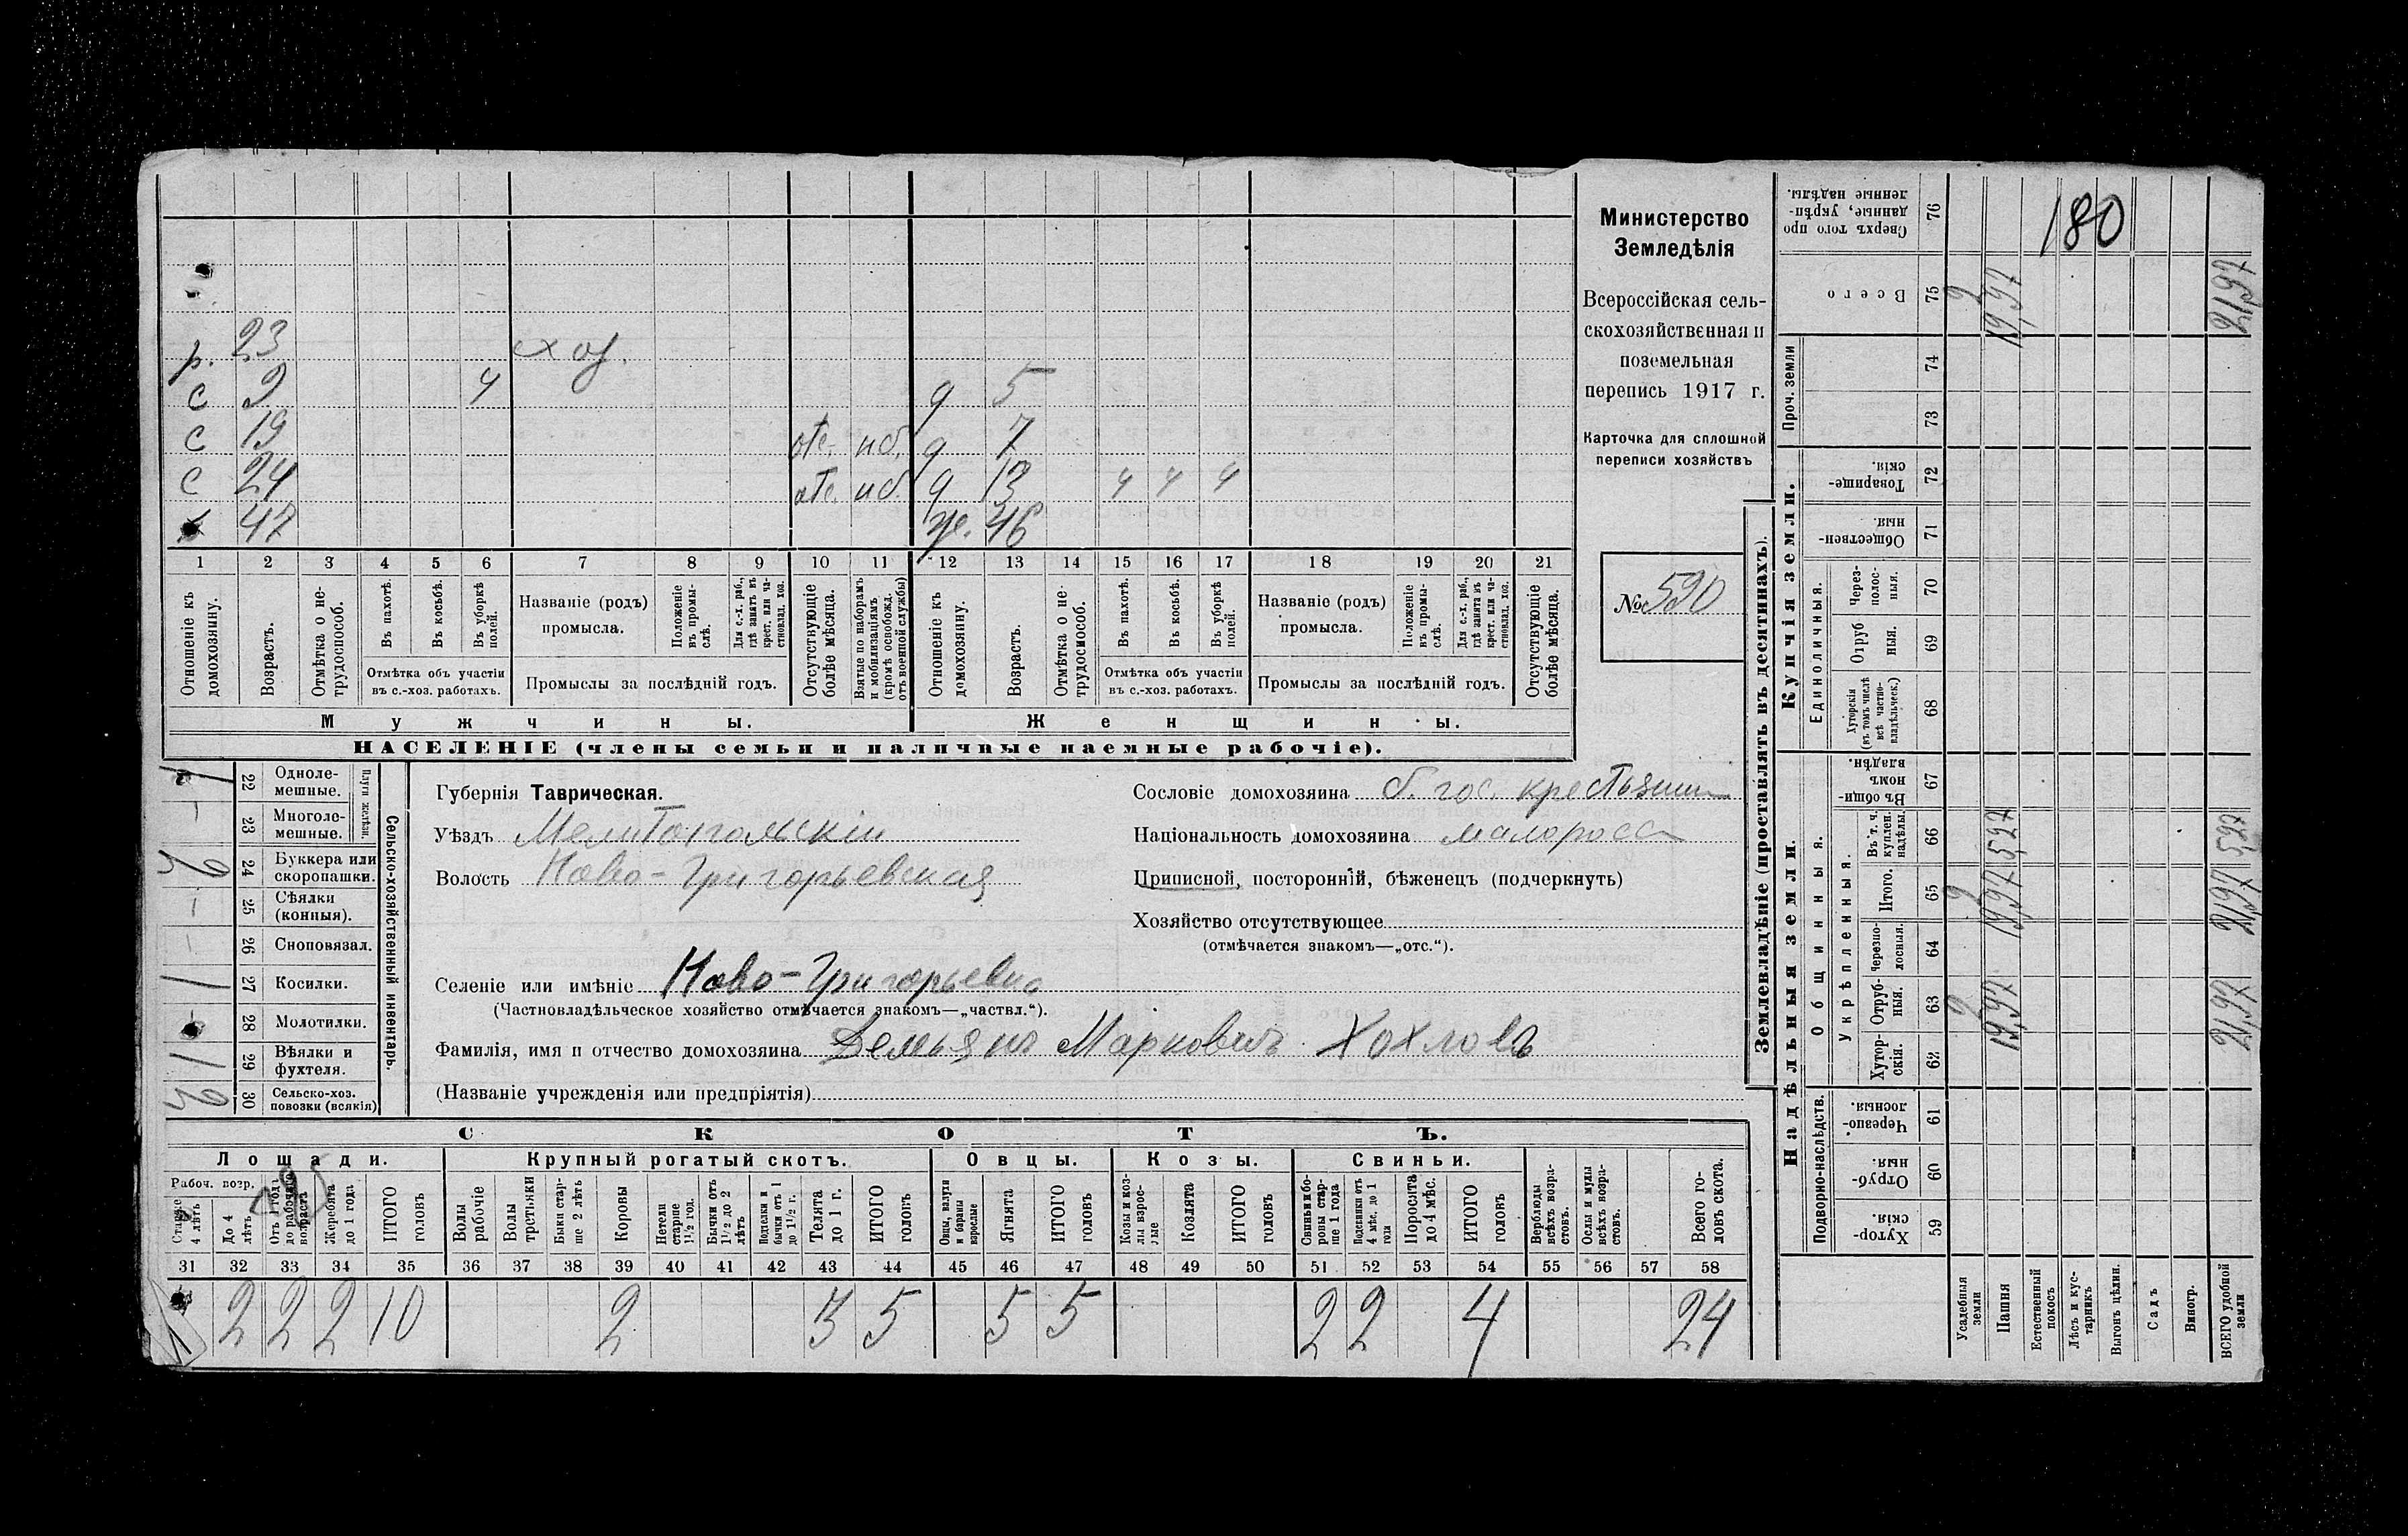 р. 23 с хоз.
с 9 ч д 5
с 19 отс. моб. д 7
с 24 отс. моб. д 13 ч ч ч
х 47 ж. 46
1 2 3 4 5 6 7 8 9 10 11 12 13 14 15 16 17 18 19 20 21
Отношеніе къ домохозяину.
Возрастъ.
Отмѣтка о нетрудоспособ.
Въ пахотѣ.
Въ косьбѣ.
Въ уборкѣ полей.
Отмѣтка объ участіи въ с.-хоз. работахъ.
Названіе (родъ) промысла.
Положеніе въ промыслѣ.
Для с.-х. раб., гдѣ занятъ въ крест. или частновлад. хоз.
Промыслы за послѣдній годъ.
Отсутствующіе болѣе мѣсяца.
Взятые по наборамъ и мобилизаціямъ (кромѣ освобожд. отъ военной службы)
Отношеніе къ домохозяину.
Возрастъ.
Отмѣтка о нетрудоспособ.
Въ пахотѣ.
Въ косьбѣ.
Въ уборкѣ полей.
Отмѣтка объ участіи въ с.-хоз. работахъ.
Названіе (родъ) промысла.
Положеніе въ промыслѣ.
Для с.-х. раб., гдѣ занята въ крест. или частновлад. хоз.
Промыслы за послѣдній годъ.
Отсутствующіе болѣе мѣсяца.
Мужчины. Женщины.
НАСЕЛЕНІЕ (члены семьи и наличные наемные рабочіе).
Министерство
Земледѣлія
Всероссійская сель-
скохозяйственная и
поземельная
перепись 1917 г.
Карточка для сплошной
переписи хозяйствъ
№ 590
Сельско-хозяйственный инвентарь.
Плуги желѣзн.
22 Однолемешные. 1
23 Многолемешные. –
24 Буккера или скоропашки. 2
25 Сѣялки (конныя). –
26 Сноповязал. –
27 Косилки. 1
28 Молотилки.
29 Вѣялки и фухтеля. 1
30 Сельско-хоз. повозки (всякія)
Губернія Таврическая.
Уѣздъ Мелитопольскій
Волость Ново-Григорьевская
Селеніе или имѣніе Ново-Григорьевка
(Частновладѣльческое хозяйство отмѣчается знакомъ—„частвл.“).
Фамилія, имя и отчество домохозяина Демьянъ Марковичъ Хохловъ
(Названіе учрежденія или предпріятія)
Сословіе домохозяина б. гос. крестьянин
Національность домохозяина малоросс
Приписной, посторонній, бѣженецъ (подчеркнуть)
Хозяйство отсутствующее
(отмѣчается знакомъ—„отс.“).
СКОТЪ.
Лошади. Крупный рогатый скотъ. Овцы. Козы. Свиньи.
Рабоч. возр.
Старше 4 лѣтъ
До 4 лѣтъ
Отъ 1 года до рабочаго возраста
Жеребята до 1 года
ИТОГО головъ
Волы рабочіе
Волы третьяки
Быки старше 2 лѣтъ
Коровы
Нетели старше 1½ год.
Бычки отъ 1½ до 2 лѣтъ
Подтелки и бычки отъ 1 до 1½ г.
Телята до 1 г.
ИТОГО головъ
Овцы, валухи и бараны взрослые
Ягнята
ИТОГО головъ
Козы и козлы взрослые
Козлята
ИТОГО головъ
Свиньи и боровы старше 1 года
Подсвинки отъ 4 мѣс. до 1 года
Поросята до 4 мѣс.
ИТОГО головъ
Верблюды всѣхъ возрастовъ.
Ослы и мулы всѣхъ возрастовъ.
Всего головъ скота.
31 32 33 34 35 36 37 38 39 40 41 42 43 44 45 46 47 48 49 50 51 52 53 54 55 56 57 58
2 2 2 10 2 3 5 5 5 2 2 4 24
Землевладѣніе (проставлять въ десятинахъ).
Сверхъ того проданные, укрѣпленные надѣлы. 76
180
Всего 75 2 19,97 21,97
Проч. земли 74 73
Купчія земли.
Товарищескія. 72
Общественныя. 71
Единоличныя.
Черезполосныя. 70
Отрубныя. 69
Хуторскія (въ томъ числѣ всѣ частновладѣльческ.) 68
Надѣльныя земли.
Общинныя.
Въ общинномъ владѣн. 67
Укрѣпленныя.
Въ т. ч. куплен. надѣлы. 66 5,27 5,27
Итого. 65 2 19,97 21,97
Черезполосныя. 64
Отрубныя. 63 2 19,97 21,97
Хуторскія. 62
Подворно-наслѣдств.
Черезполосныя. 61
Отрубныя. 60
Хуторскія. 59
Усадебныя земли
Пашня
Естественный покосъ
Лѣсъ и кустарникъ
Выгонъ цѣлин.
Садъ
Виногр.
ВСЕГО удобной земли